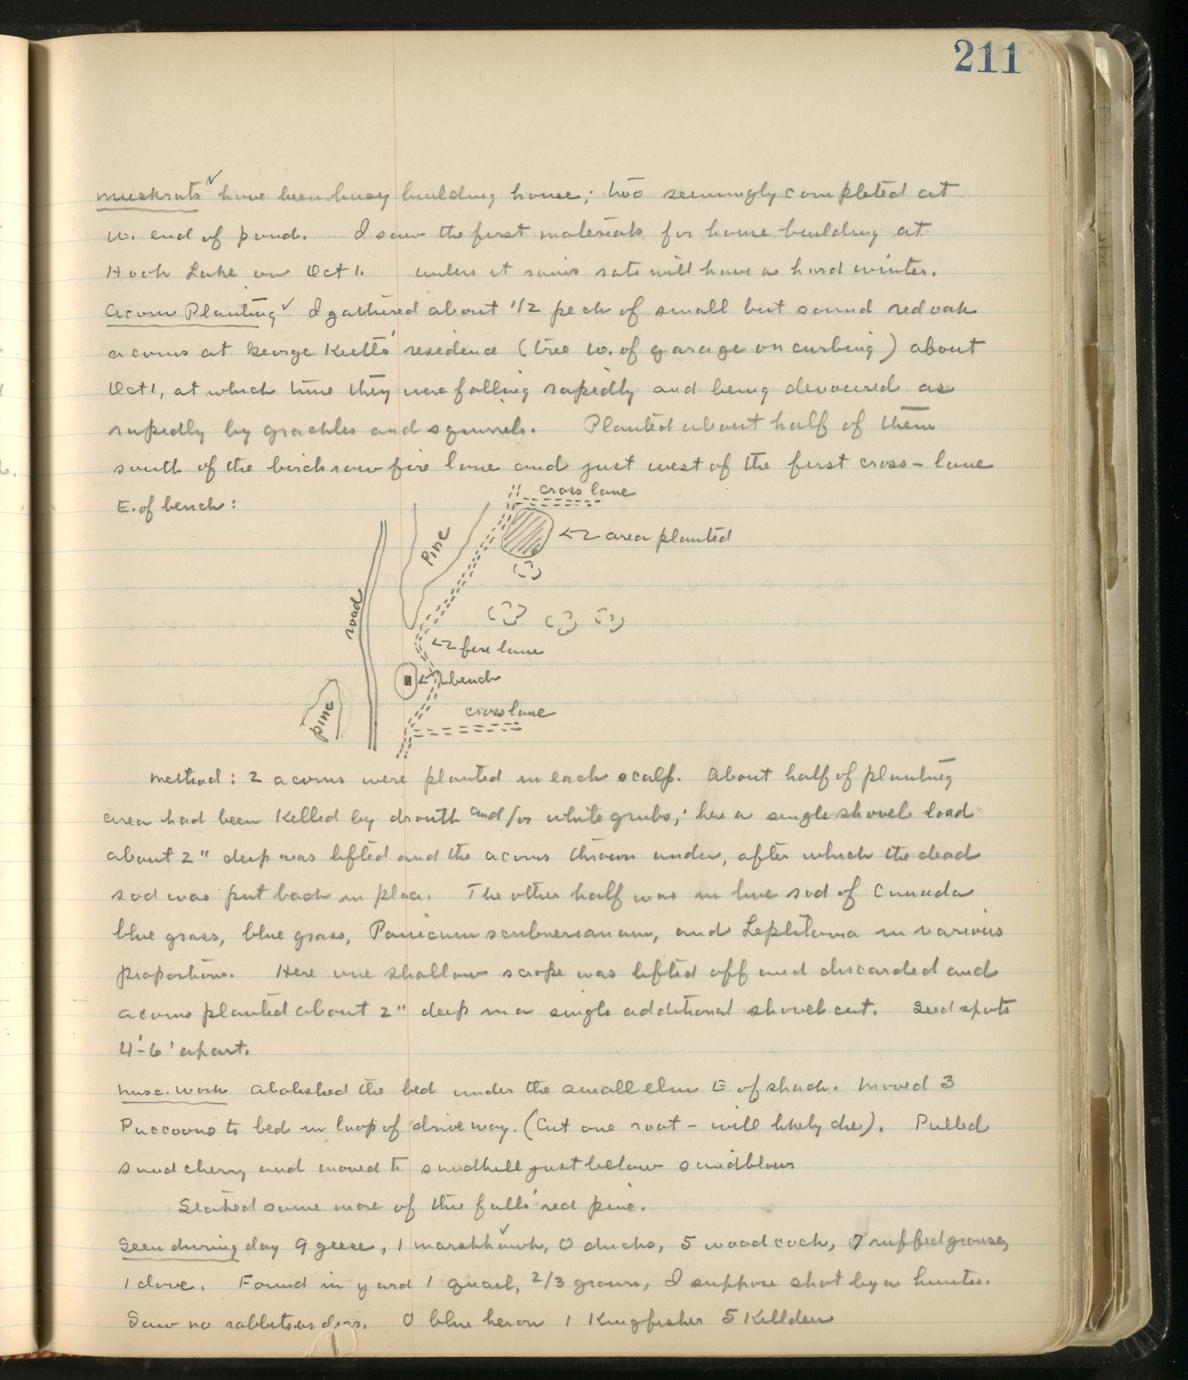 211
muskrats ✓ have been busy building house; two seemingly completed at
W. end of pond. I saw the first materials for house building at
Hook Lake on Oct 1. unless it rains rats will have a hard winter.
Acorn Planting ✓ I gathered about 1/2 peck of small but sound red oak
acorns at George Keitts' residence (tree W. of garage on curbing) about
Oct 1, at which time they were falling rapidly and being devoured as
rapidly by grackles and squirrels. Planted about half of them
south of the birch row fire lane and just west of the first cross-lane
E. of bench:
cross lane
Pine
area planted
road
fire lane
bench
pine
cross lane
method: 2 acorns were planted in each scalp. About half of planting
area had been killed by drouth and/or white grubs; here a single shovel load
about 2" deep was lifted and the acorns thrown under, after which the dead
sod was put back in place. The other half was in live sod of Canada
blue grass, blue grass, Panicum scribnerianum, and Leptiloma in various
proportions. Here one shallow scrape was lifted off and discarded and
acorns planted about 2" deep in a single additional shovel cut. Seed spots
4'-6' apart.
misc. work Abolished the bed under the small elm E of shack. Moved 3
Puccoons to bed in loop of driveway. (Cut one root - will likely die). Pulled
sand cherry and moved to sandhill just below sandblow
Staked some more of this fall's red pine.
Seen during day 9 geese, 1 marsh hawk, ✓ 0 ducks, 5 woodcock, 7 ruffed grouse,
1 dove. Found in yard 1 quail, 2/3 grown, I suppose shot by a hunter.
Saw no rabbits or deer. 0 blue heron 1 Kingfisher 5 Killdeer